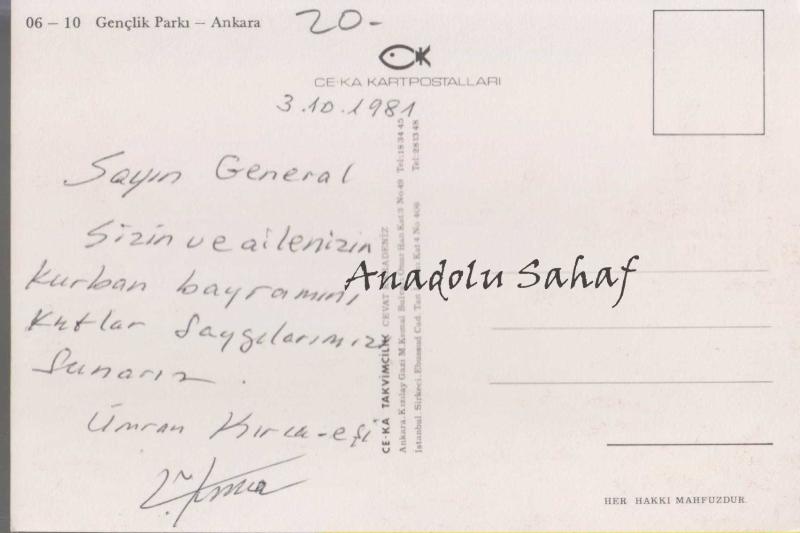 06 – 10 Gençlik Parkı – Ankara
20-
CE-KA KARTPOSTALLARI
3.10.1981
Sayın General
Sizin ve ailenizin
Kurban bayramını
Kutlar Saygılarımızı
Sunarız.
Ümran
Anadolu Sahaf
CE-KA TAKVİMCİLİK CEVAT KARADENİZ
Ankara. Kızılay Gazi M. Kemal Han Kat 3 No 49 Tel: 18 34 45
İstanbul. Sirkeci. Ebussud Cad. Kat 4 No 406 Tel: 28 13 48
HER HAKKI MAHFUZDUR.